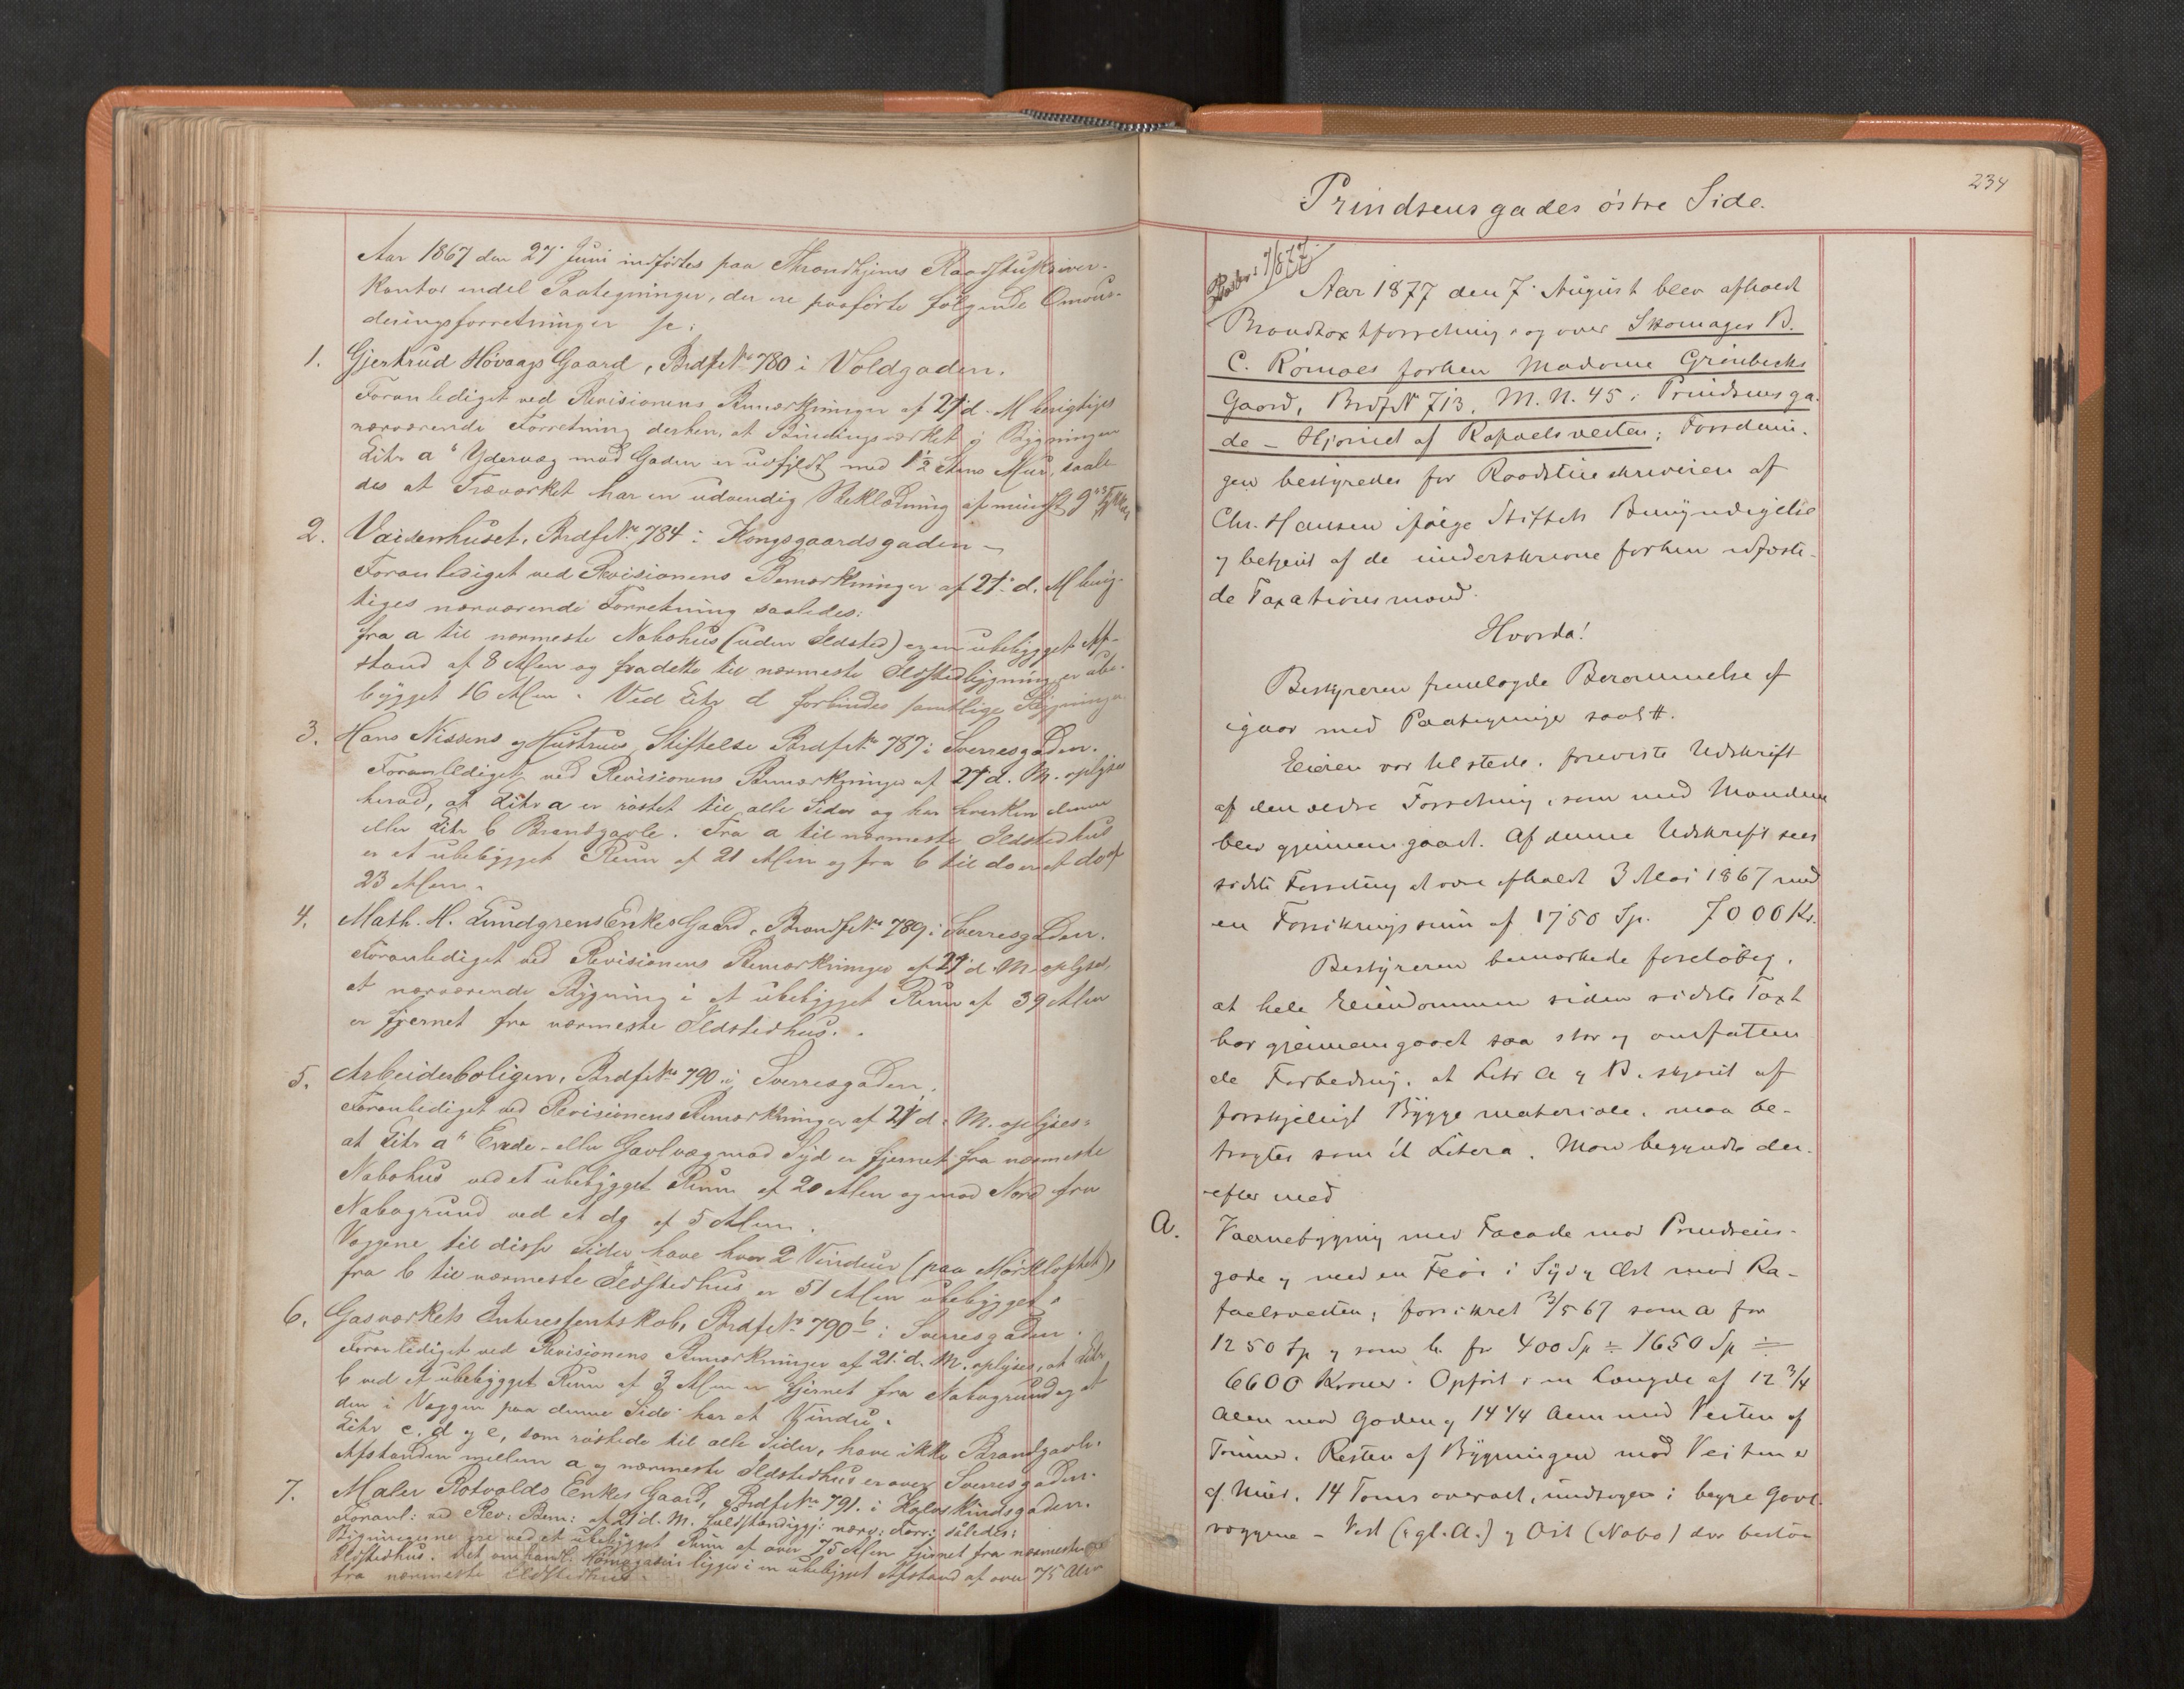 Aar 1867 den 27. Juni indførtes paa Throndhjems Raadstuskriver-
kontor endel Paategninger, der ere paaførte følgende Omvur-
deringsforretninger sc:
1. Gjertrud Høvaags Gaard, Brdf. No 780 i Voldgaden.
Foranlediget ved Revisionens Bemærkninger af 21' d. M berigtiges
nærværende Forretning derhen, at Bindingsværket i Bygningen
Litr a" Ydervæg mod Gaden er udfyldt med 1/2 Stens Mur, saale-
des at Træværket har en udvendig Beklædning af mindst
2. Vaisenhuset, Brdf. No 784 i Kongsgaardsgaden -
Foranlediget ved Revisionens Bemærkninger af 21' d. M berig-
tiges nærværende Forretning saaledes:
fra a til nærmeste Nabohus (uden Ildsted) er en ubebygget Af-
stand af 8 Alen og fra dette til nærmeste Ildstedbygning er ube-
bygget 16 Alen. Ved Litr d forbindes samtlige Bygninger
3. Hans Nissens og Hustrues Stiftelse Brdf. No 787 i Sverresgaden.
Foranlediget ved Revisionens Bemærkninger af 21' d. M. oplyses
herved, at Litr a er røstet til alle Sider og har hverken denne
eller Litr b Brandgavle. Fra a til nærmeste Ildstedhus
er et ubebygget Rum af 21 Alen og fra b til do er et do af
23 Alen.
4. Math. H. Lundgrens Enkes Gaard, Brandf. No 789 i Sverresgaden.
Foranlediget ved Revisionens Bemærkninger af 21' d. M. oplyses,
at nærværende Bygning i et ubebygget Rum af 39 Alen
er fjernet fra nærmeste Ildstedhus.
5. Arbeiderboligen, Brdf. No 790 i Sverresgaden.
Foranlediget ved Revisionens Bemærkninger af 21' d. M. oplyses:
at Litr a" Ende- eller Gavlvæg mod Syd er fjernet fra nærmeste
Nabohus ved et ubebygget Rum af 20 Alen og mod Nord fra
Nabogrund ved et do af 5 Alen.
Væggene til disse Sider have hver 2 Vinduer (paa Mørkloftet),
fra b til nærmeste Ildstedhus er 51 Alen ubebygget.
6. Gasværkets Interessentskab, Brdf. No 790 b i Sverresgaden.
Foranlediget ved Revisionens Bemærkninger af 21' d. M. oplyses, at Litr
b ved et ubebygget Rum af 3 Alen er fjernet fra Nabogrund og at
den i Væggen paa denne Side har et Vindu.
Litr c, d og e, som røstede til alle Sider, have ikke Brandgavle.
Afstanden mellem a og nærmeste Ildstedhus er over Sverresgaden.
7. Maler Rotvolds Enkes Gaard, Brdf. No 791. i Halvskindsgaden.
Foranl: ved Rev: Bem: af 21' d. M. fuldstændiggj: nærv: Forr: således:
Bygningerne ere ved et ubebygget Rum af over 75 Alen fjernet fra nærmeste
Ildstedhus. Det omhandl. ligger i en ubebygget Afstand af over 75 Alen
fra nærmeste Ildstedhus.
234
Prindsensgades østre Side.
7/8 77
Aar 1877 den 7. August blev afholdt
Brandtaxtforretning og over Skomager B.
C. Rømoes forhen Madame Grønbecks
Gaard, Brdf. No 713, M. N. 45 i Prindsensga-
de - Hjørnet af Rafaelsveiten; Forretnin-
gen bestyredes for Raadstueskriveren af
Chr. Hansen ifølge Stiftets Bemyndigelse
og betjent af de underskrevne forhen udfæste-
de Taxationsmænd.
Hvorda!
Bestyreren fremlagde Berammelse af
igaar med Paategninger saal #.
Eieren var tilstede, foreviste Udskrift
af den ældre Forretning, som med Mændene
blev gjennemgaaet. Af denne Udskrift sees
sidste Forretning at være afholdt 3 Mai 1867 med
en Forsikringssum af 1750 Sp. 7000 Kr.
Bestyreren bemærkede foreløbig,
at hele Eiendommen siden sidste Taxt
har gjennemgaaet saa stor og omfatten-
de Forbedring, at Litr A og B, skjønt af
forskjelligt Byggemateriale, maa be-
tragtes som et Litera. Man begyndte der-
efter med
A. Vaanebygning med Facade mod Prindsens-
gade og med en Fløi i Syd og Øst mod Ra-
faelsveiten; forsikret 3/5 67 som a for
1250 Sp og som b. for 400 Sp ÷ 1650 Sp ÷
6600 Kroner. Opført i en Længde af 12 3/4
Alen mod Gaden og 14 1/4 Alen mod Veiten af
Tømmer. Resten af Bygningen mod Veiten er
af Muur, 14 Toms overalt, undtagen i begge Gavl-
væggene - Vest (gl. A.) og Øst (Nabo) der bestaa